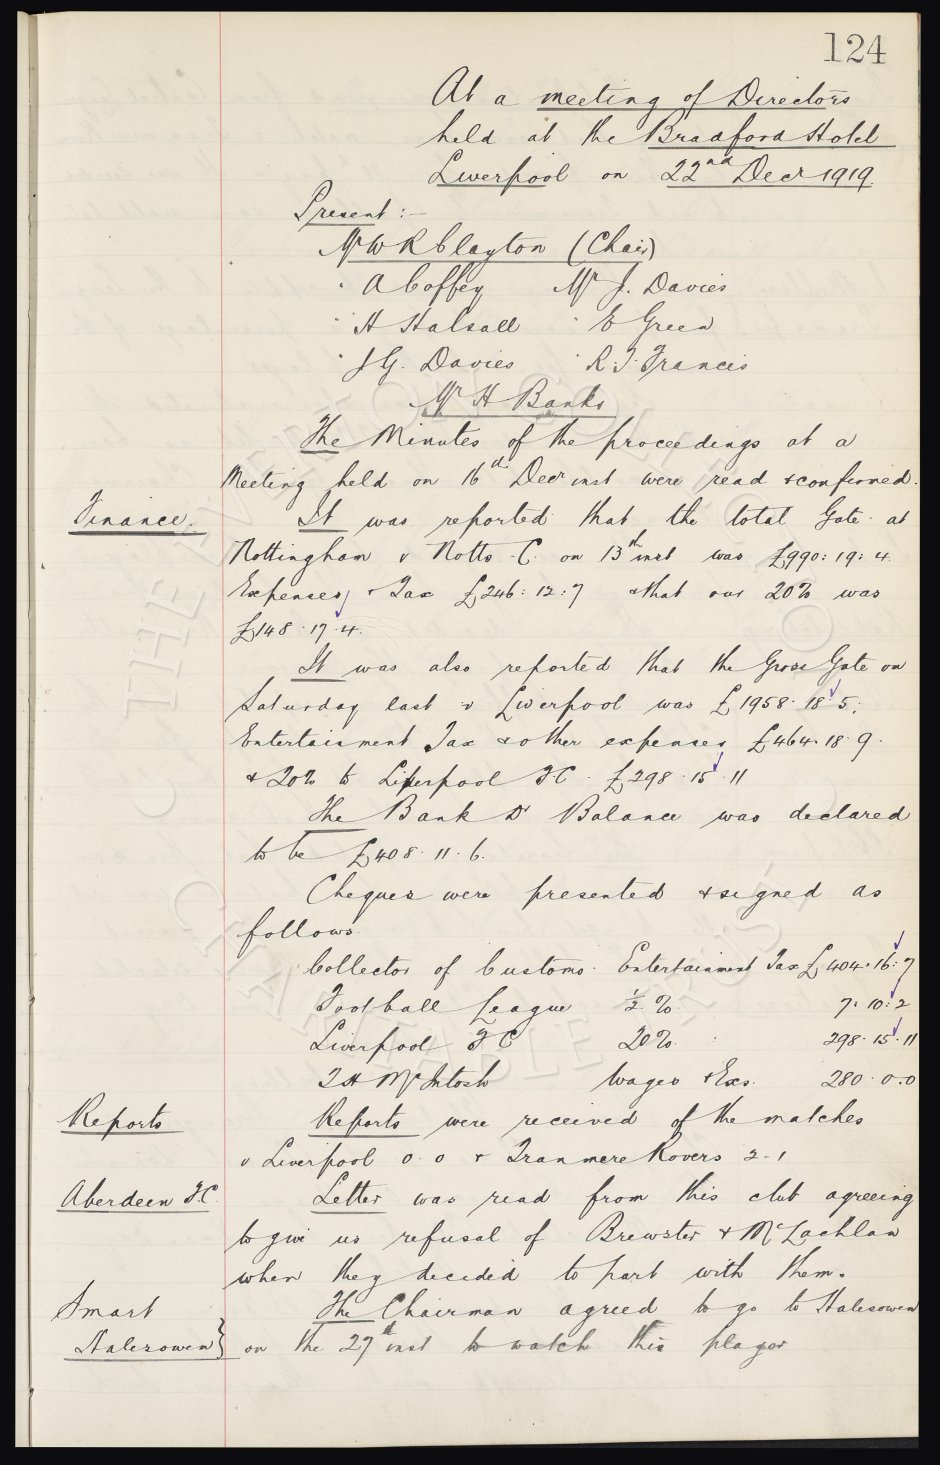 124
At a meeting of Directors
held at the Bradford Hotel
Liverpool on 22nd Decr 1919.
Present :-
Mr W R Clayton (Chair)
" A Coffey Mr J. Davies
" H Halsall " E Green
" J G. Davies " R. T. Francis
Mr H Banks
The Minutes of the proceedings at a
Meeting held on 16th Decr inst were read & confirmed.
Finance. It was reported that the total Gate at
Nottingham v Notts C. on 13th inst was £990:19:4.
Expenses & Tax £246:12:7 & that our 20% was
£148.17.4.
It was also reported that the Gross Gate on
Saturday last v Liverpool was £1958.18.5;
Entertainment Tax & other expenses £464.18.9.
& 20% to Liverpool F C. £298.15.11
The Bank Dr Balance was declared
to be £408.11.6.
Cheques were presented & signed as
follows.
Collector of Customs. Entertainment Tax £404.16:7
Football League ½ %. 7:10:2
Liverpool F C 20%. 298.15.11
T H McIntosh Wages & Exs. 280.0.0
Reports Reports were received of the matches
v Liverpool 0.0 & Tranmere Rovers 2-1
Aberdeen F.C. Letter was read from this club agreeing
to give us refusal of Brewster & McLachlan
when they decided to part with them.
Smart The Chairman agreed to go to Halesowen
Halesowen} on the 27th inst to watch this player
THE EVERTON COLLECTION CHARITABLE TRUST